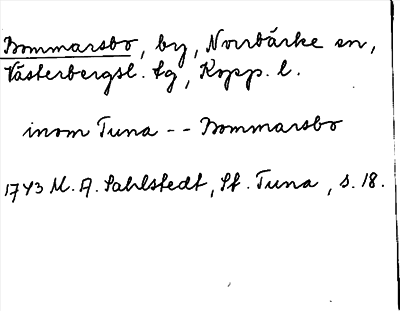 Bommarsbo, by, Norrbärke sn,
Västerbergsl. tg, Kopp. l.
inom Tuna -- Bommarsbo
1743 M. A. Sahlstedt, St. Tuna, s. 18.